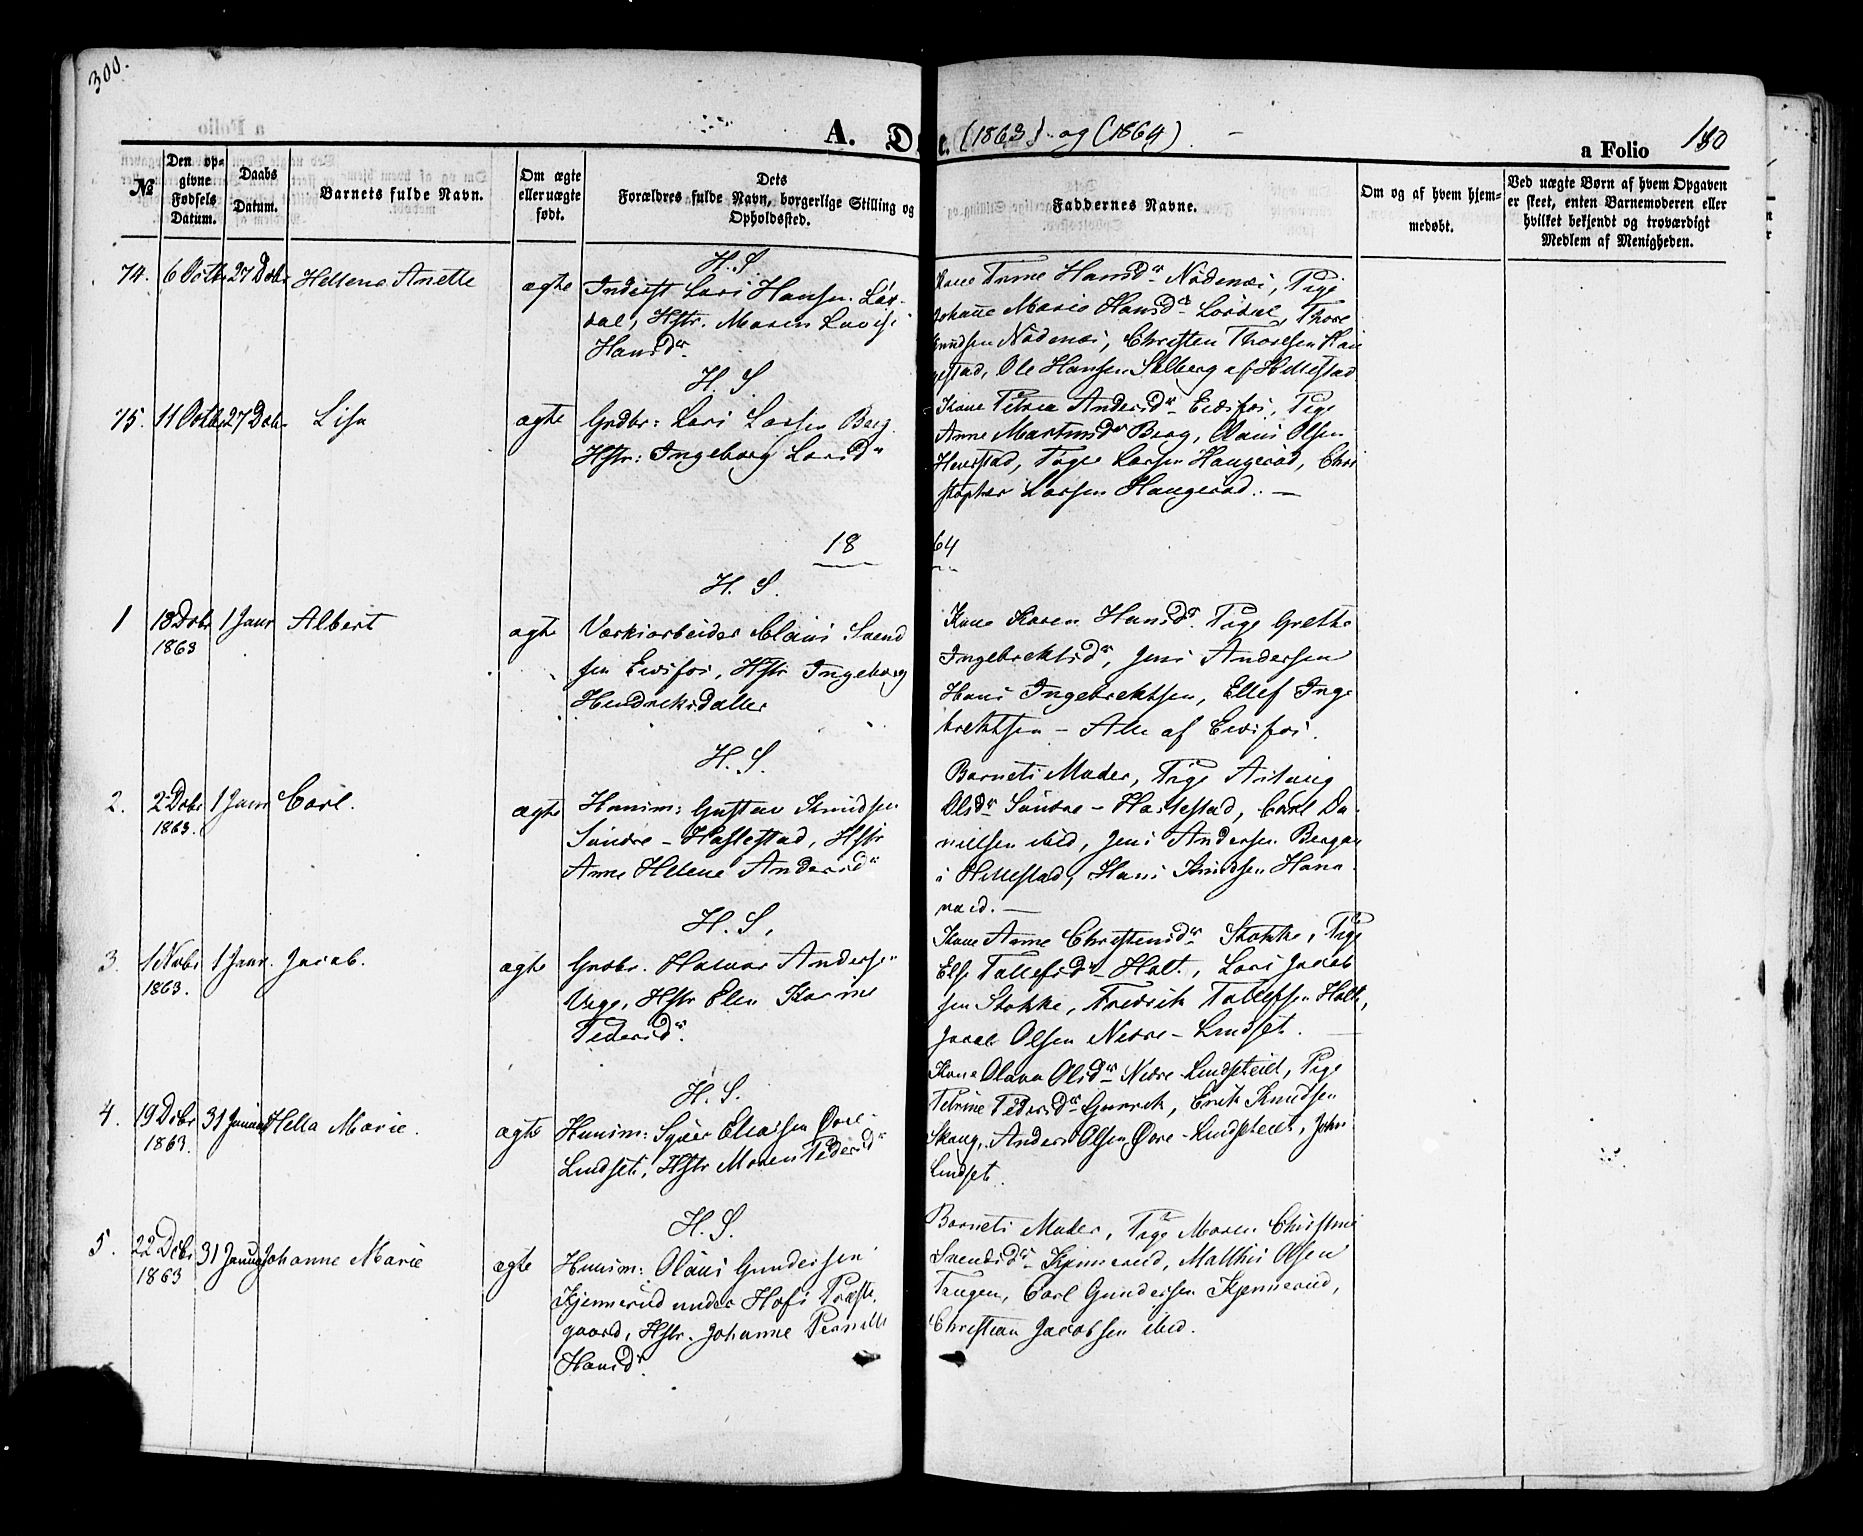 300.
A. D
c. (1863) og (1864).
a Folio 180
№
Den op-
givne
Fødsels
Datum.
Daabs
Datum.
Barnets fulde Navn.
Om ægte
eller uægte
født.
Dets
Forældres fulde Navn, borgerlige Stilling og
Opholdssted.
Faddernes Navne.
Om og af hvem hjem-
medøbt.
Ved uægte Børn af hvem Opgaven
er skeet, enten Barnemoderen eller
hvilket bekjendt og troværdigt
Medlem af Menigheden.
H. S.
74. 6 Octbr 27 Dcbr Hellene Anette ægte
Inderst Lars Hansen Lør-
dal, Hstr. Maren Lovise
Hansdr.
Kone Trine Hansdr Nødenæs, Pige
Johanne Marie Hansdr Lørdal, Thore
Knudsen Nødenæs, Christen Thoresen Hau
gestad, Ole Hansen Solberg af Hillestad
H. S
75. 11 Octbr 27 Dcbr Lisa ægte
Grdbr: Lars Larsen Berg
Hstr: Ingeborg Larsdr
Kone Petrea Andersdr Eidsfos, Pige
Anne Martinsdr Berg, Olaus Olsen
Haugerød, Chri
stopher Larsen Haugerød. —
18
64
H. S.
1 18 Dcbr 1863 1 Janr Albert ægte
Værksarbeider Claus Svend
sen Eidsfos, Hstr Ingeborg
Hendreksdatter
Kone Karen Hansdr. Pige Grethe
Ingebrektsdr, Jens Andersen
Hans Ingebrektsen, Ellef Inge
brektsen – Alle af Eidsfos.
H. S.
2. 2 Dcbr 1863. 1 Janr Carl. ægte
Huusm: Gustav Knudsen
Søndre – Haslestad, Hstr
Anne Helene Andersdr
Barnets Moder, Pige Aslaug
Olsdr Søndre – Haslestad, Carl Da-
nielsen ibid, Jens Andersen Bergan
i Hillestad, Hans Knudsen Hana
vold. —
H. S.
3. 1 Nvbr 1863. 1 Janr. Jacob. ægte
Grdbr. Halvor Andersen
Vege, Hstr Elen Karine
Pedersdr.
Kone Anne Christensdr Stokke, Pige
Else Tollefsdr Holt, Lars Jacob
sen Stokke, Fredrik Tollefsen Holt,
Jacob Olsen Nedre – Lindset. —
H. S.
4. 19 Dcbr 1863. 31 Januar Hella Marie. ægte
Huusm: Syver Eliassen Øvre
Lindset, Hstr Maren Pedersdr
Kone Olava Olsdr Nedre Lindseteid, Pige
Petrine Pedersdr Erik Knudsen
Skaug, Anders Olsen Øvre – Lindseteid, John
Lindset.
H. S.
5. 22 Dcbr 1863 31 Januar Johanne Marie ægte
Huusm: Olaus Gundersen
Kjennerud under Hofs Præste
gaard, Hstr. Johanne Pernille
Hansdr.
Barnets Moder, Pige Maren Christine
Svendsdr Kjennerud, Matthis Olsen
Tangen, Carl Gundersen Kjennerud,
Christian Jacobsen ibid.